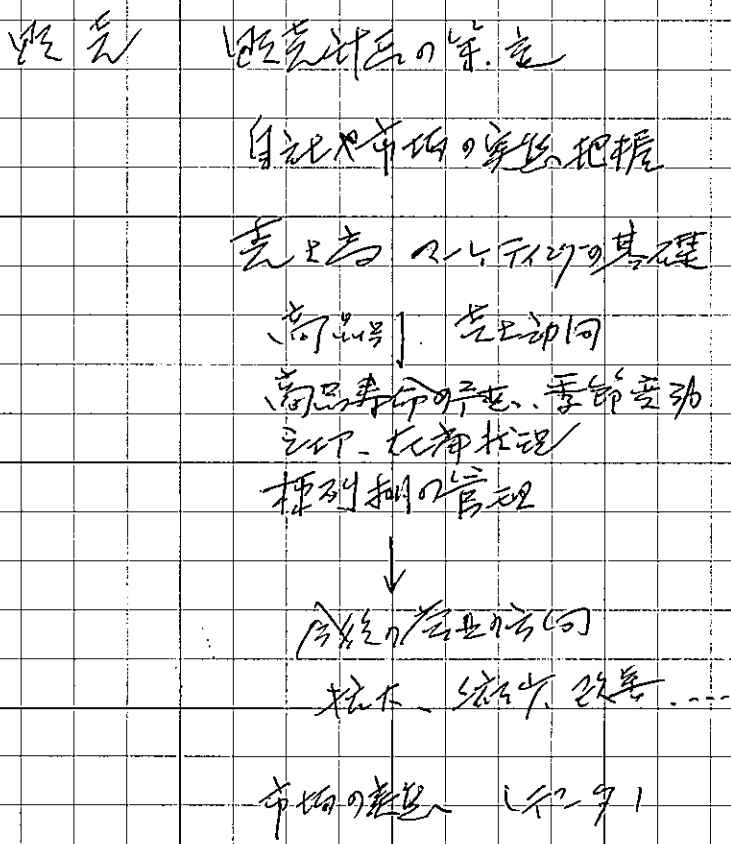 販売 販売計画の策定
自社や市場の実態把握
売上高 マーケティングの基礎
商品別 売上動向
商品寿命の予想、季節変動
シェア、在庫状況
陳列棚の管理
↓
今後の営業の方向
拡大、縮小、改善、....
市場の実態